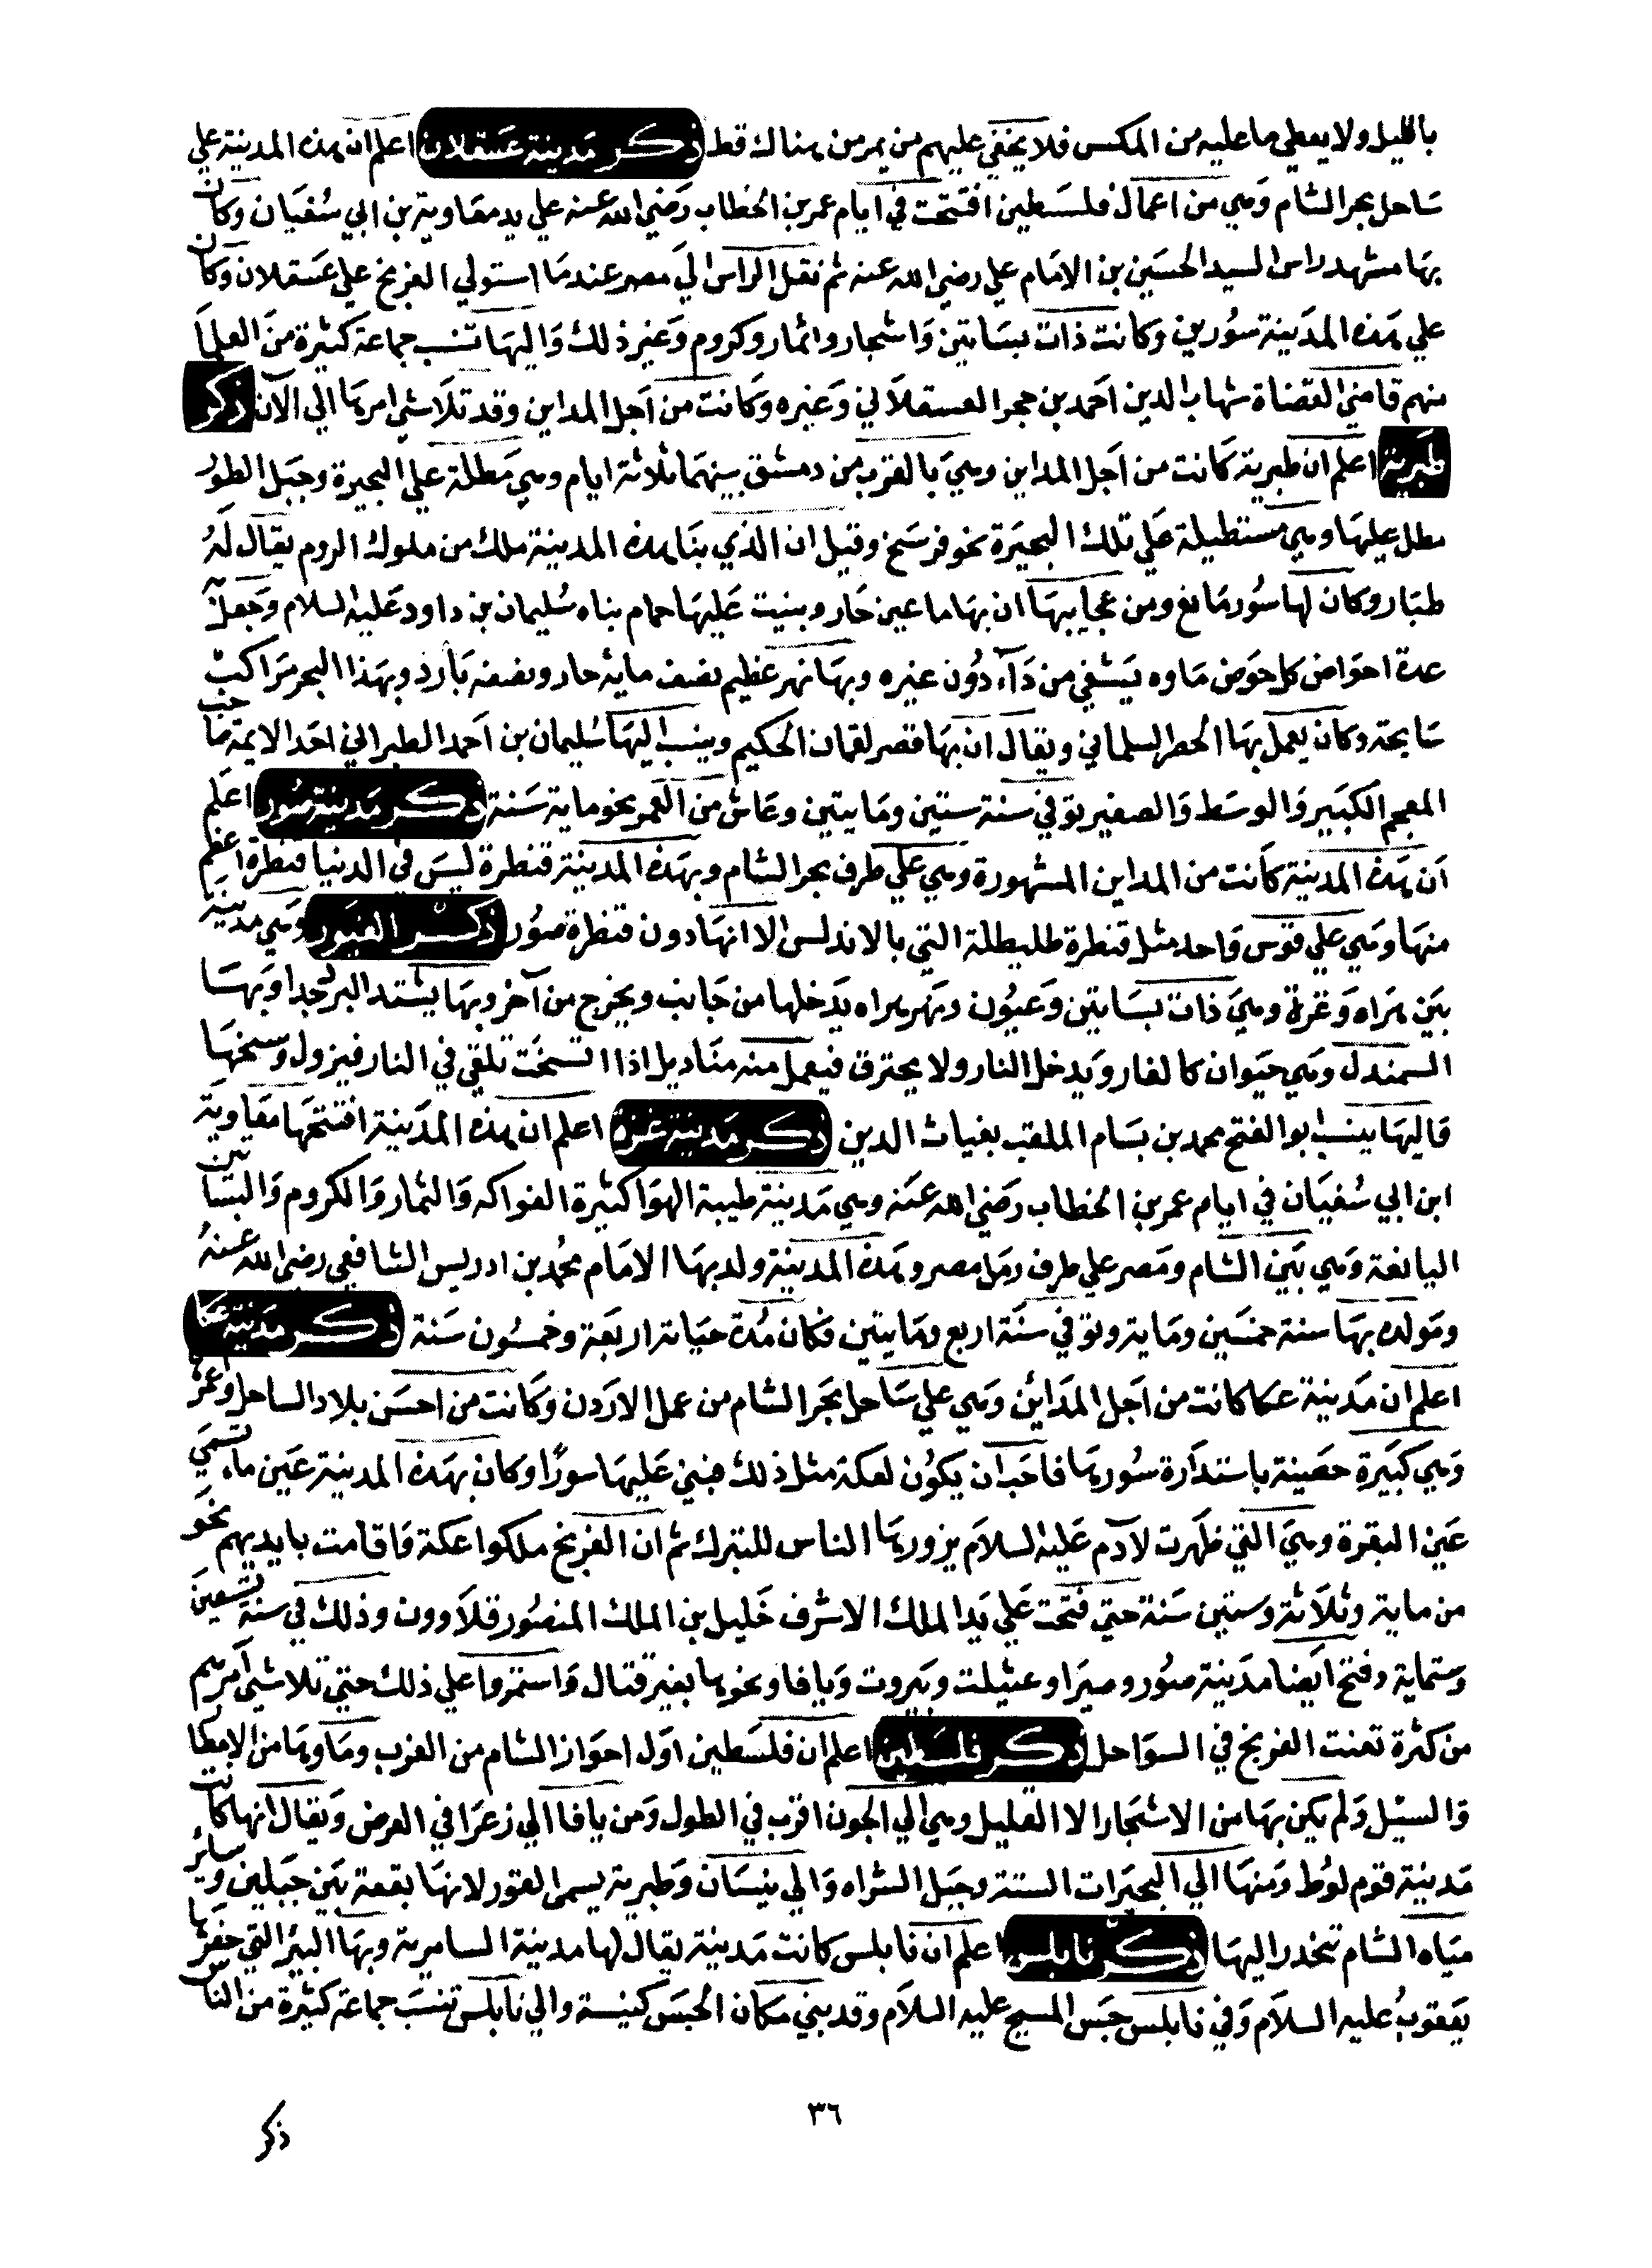 بالليل ولا يعطي ما عليه من المكس فلا يخفي عليهم من يمر من هناك قط ذكر مدينة عسقلان اعلم ان هذه المدينة علي
ساحل بحر الشام وهي من اعمال فلسطين افتتحت في ايام عمر بن الخطاب رضي الله عنه علي يد معاوية بن ابي سفيان وكان
بها مشهد راس السيد الحسين بن الامام علي رضي الله عنه ثم نقل الراس الي مصر عندما استولي الفرنج علي عسقلان وكان
علي هذه المدينة سورين وكانت ذات بساتين واشجار واثمار وكروم وغير ذلك واليها تنسب جماعة كثيرة من العلما
منهم قاضي القضاة شهاب الدين احمد بن حجر العسقلاني وغيره وكانت من اجل المداين وقد تلاشي امرها الي الآن ذكر
طبرية اعلم ان طبرية كانت من اجل المداين وهي بالقرب من دمشق بينهما ثلاثة ايام وهي مطلة علي البحيرة وجبل الطور
مطل عليها وهي مستطيلة علي تلك البحيرة نحو فرسخ وقيل ان الذي بنا هذه المدينة ملك من ملوك الروم يقال له
طبار وكان لها سور مانع ومن عجايبها ان بها ما عين حار وبنيت عليها حمام بناه سليمان بن داود عليه السلام وجعل له
عدة احواض كل حوض ماوه يشفي من دآء دون غيره وبها نهر عظيم نصف مايه حار ونصفه بارد وبهذا البحر مراكب
سايحة وكان يعمل بها الحصر السلماني ويقال ان بها قصر لقمان الحكيم وينسب اليها سليمان بن احمد الطبراني احد الايمة صاحب
المعجم الكبير والوسط والصغير توفي سنة ستين ومايتين وعاش من العمر نحو ماية سنة ذكر مدينة صور اعلم
ان هذه المدينة كانت من المداين المشهورة وهي علي طرف بحر الشام وبهذه المدينة قنطرة ليس في الدنيا قنطرة اعظم
منها وهي علي قوس واحد مثل قنطرة طليطلة التي بالاندلس الا انها دون قنطرة صور ذكر الغور وهي مدينة
بين هراه وغزنة وهي ذات بساتين وعيون ونهر هراه يدخلها من جانب ويخرج من آخر وبها يشتد البرد جدا وبها
السمندل وهي حيوان كالفار ويدخل النار ولا يحترق فيعمل منه مناديل اذا اتسخت تلقي في النار فيزول وسخها
واليها ينسب ابو الفتح محمد بن بسام الملقب بغياث الدين ذكر مدينة غزة اعلم ان هذه المدينة افتتحها معاوية
ابن ابي سفيان في ايام عمر بن الخطاب رضي الله عنه وهي مدينة طيبة الهوا كثيرة الفواكه والثمار والكروم والبساتين
اليانعة وهي بين الشام ومصر علي طرف رمل مصر وهذه المدينة ولد بها الامام محمد بن ادريس الشافعي رضي الله عنه
ومولده بها سنة خمسين وماية وتوفي سنة اربع ومايتين فكان مدة حياته اربعة وخمسون سنة ذكر مدينة عكا
اعلم ان مدينة عكا كانت من اجل المداين وهي علي ساحل بحر الشام من عمل الاردن وكانت من احسن بلاد الساحل واعمرها
وهي كبيرة حصينة باستدارة سورها فاحب ان يكون لعكة مثل ذلك فبني عليها سورا وكان بهذه المدينة عين ماء تسمي
عين البقرة وهي التي ظهرت لآدم عليه السلام يزورها الناس للتبرك ثم ان الفرنج ملكوا عكة واقامت بايديهم نحو
من ماية وثلاثة وستين سنة حتي فتحت علي يد الملك الاشرف خليل بن الملك المنصور قلاوون وذلك في سنة تسعين
وستماية وفتح ايضا مدينة صور وصيدا وعثيلت وبيروت ويافا ونحوها بغير قتال واستمروا علي ذلك حتي تلاشي امرهم
من كثرة تعنت الفرنج في السواحل ذكر فلسطين اعلم ان فلسطين اول احواز الشام من الغرب وماوها من الامطار
والسيل ولم يكن بها من الاشجار الا القليل وهي الي الجون اقرب في الطول ومن يافا الي زعرا في العرض ويقال انها كانت
مدينة قوم لوط ومنها الي البحيرات الستنة وجبل الشراه والي بيسان وطبرية يسمي الغور لانها بقعة بين جبلين وساير
مياه الشام تنحدر اليها ذكر نابلس اعلم ان نابلس كانت مدينة يقال لها مدينة السامرية وبها البئر التي حفرها
يعقوب عليه السلام وفي نابلس حبس المسيح عليه السلام وقد بني مكان الحبس كنيسة والي نابلس تنسب جماعة كثيرة من الناس
٣٦
ذكر